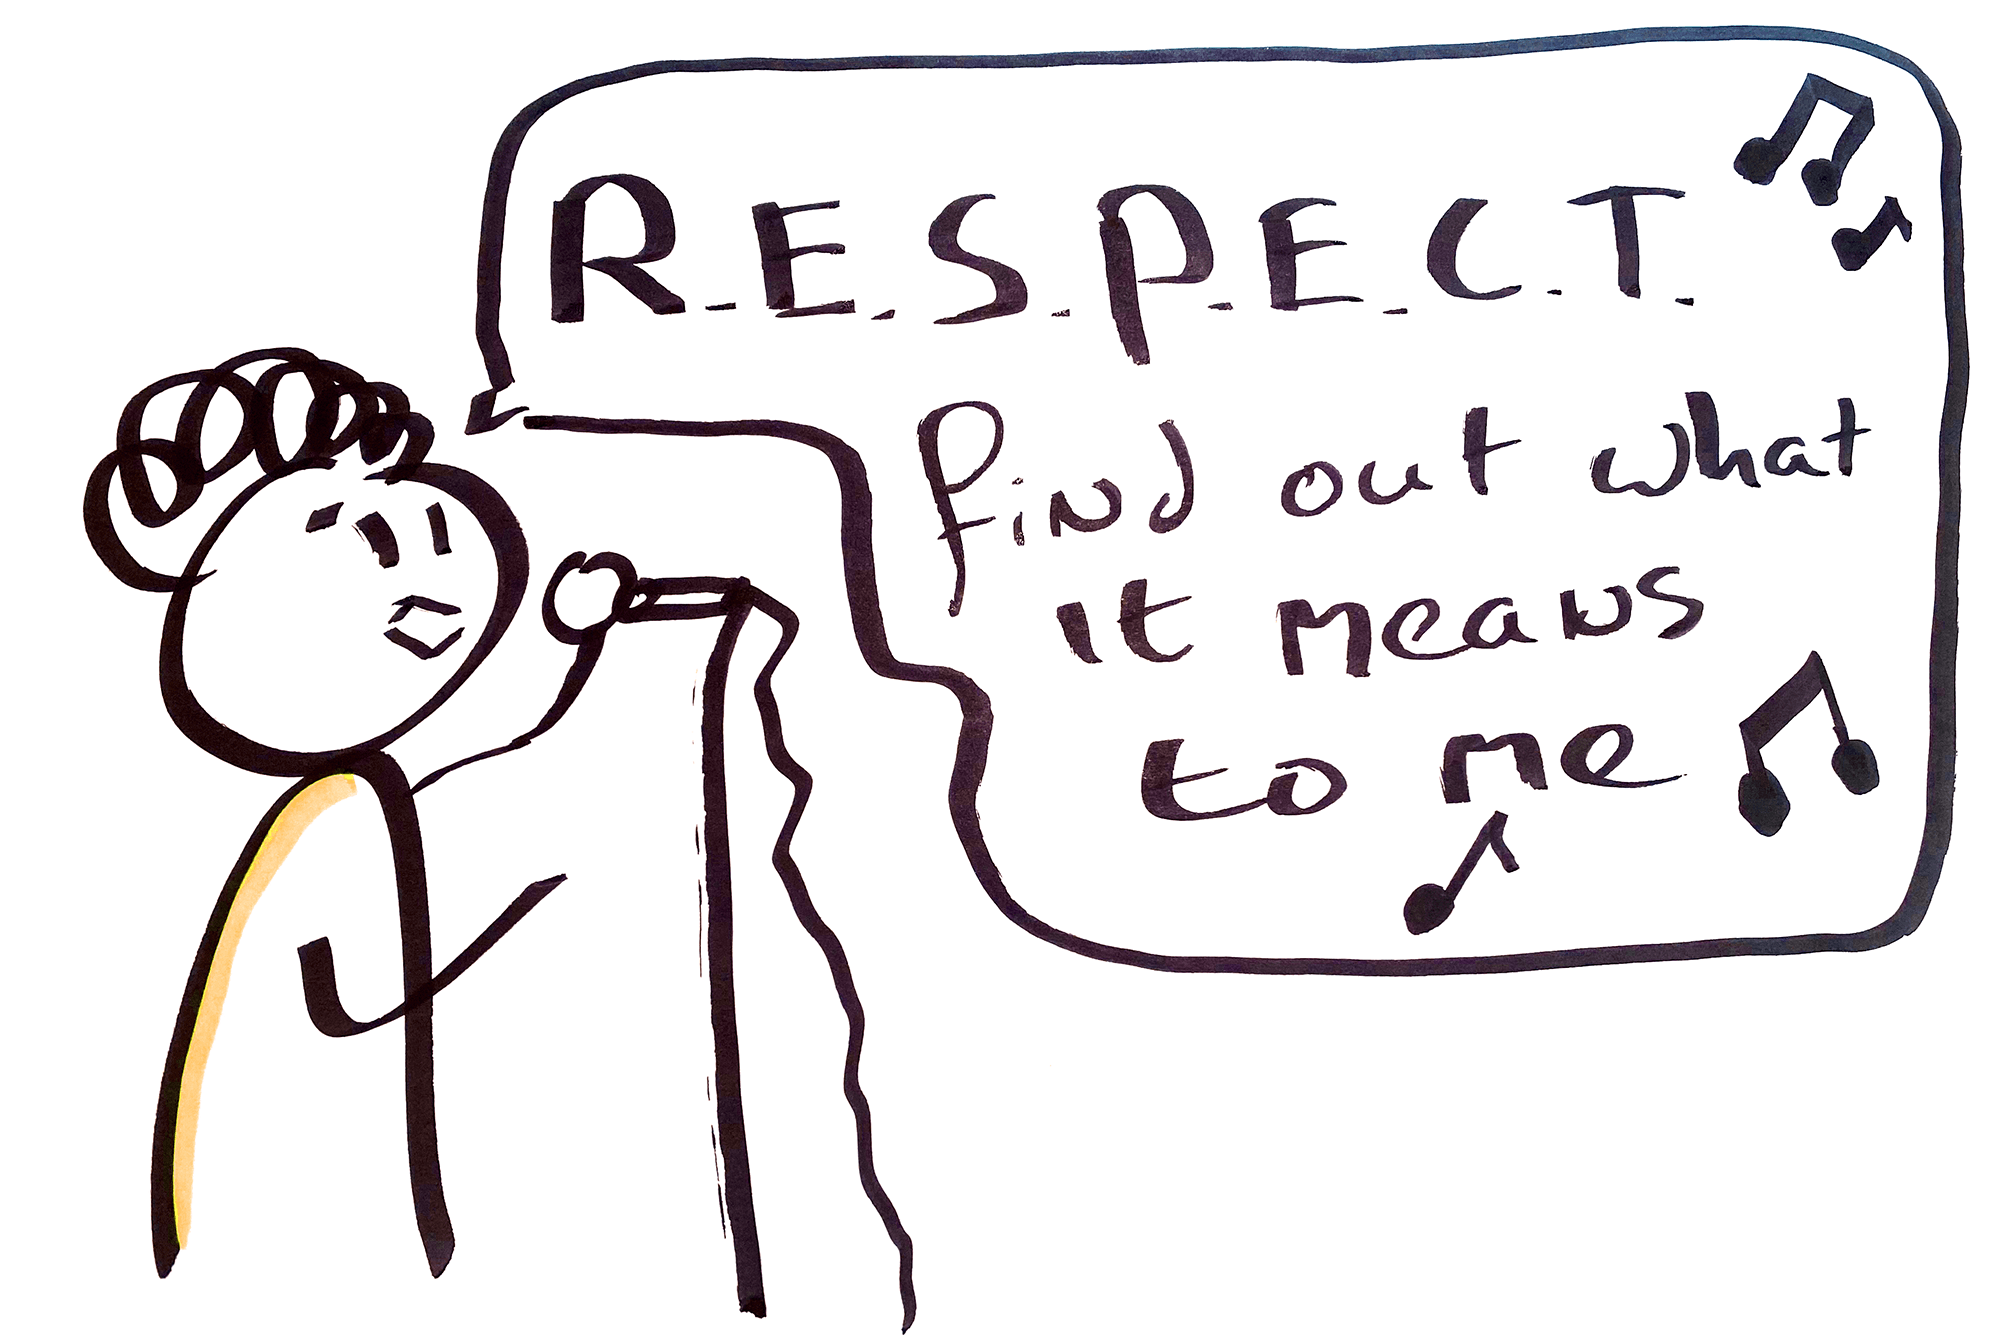 R.E.S.P.E.C.T.
find out what
it means
to me